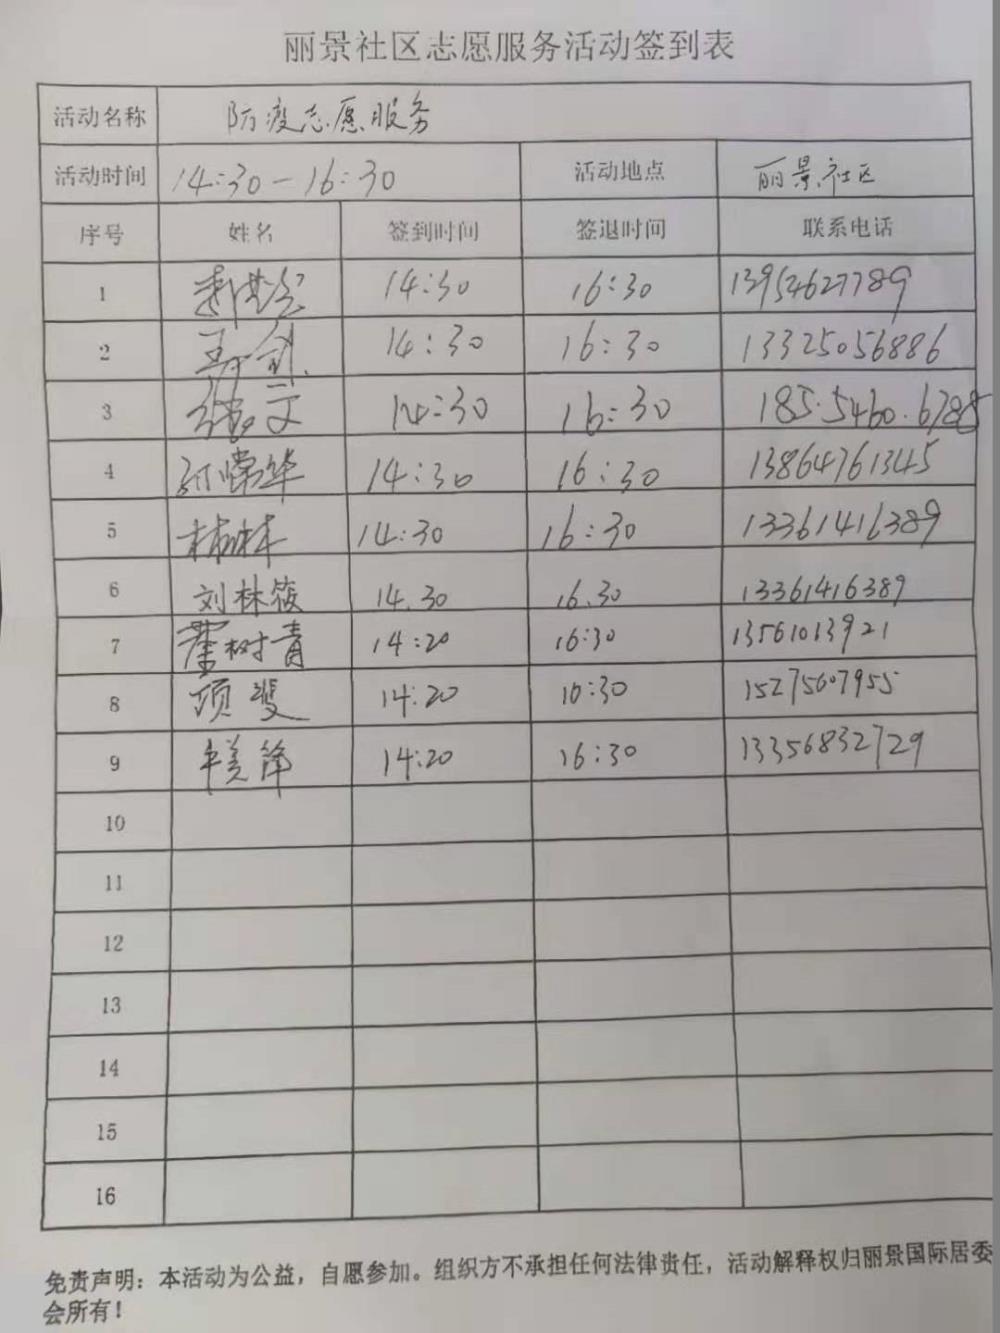 丽景社区志愿服务活动签到表
活动名称 防疫志愿服务
活动时间 14:30-16:30 活动地点 丽景社区
序号 姓名 签到时间 签退时间 联系电话
1 14:30 16:30 13954627789
2 14:30 16:30 13325056886
3 14:30 16:30 185.5460.6788
4 14:30 16:30 13864761345
5 14:30 16:30 13361416389
6 刘林筱 14.30 16.30 13361416389
7 树青 14:20 16:30 13561013921
8 项斐 14:20 16:30 15275607955
9 14:20 16:30 13356832729
10
11
12
13
14
15
16
免责声明：本活动为公益，自愿参加。组织方不承担任何法律责任，活动解释权归丽景国际居委
会所有！